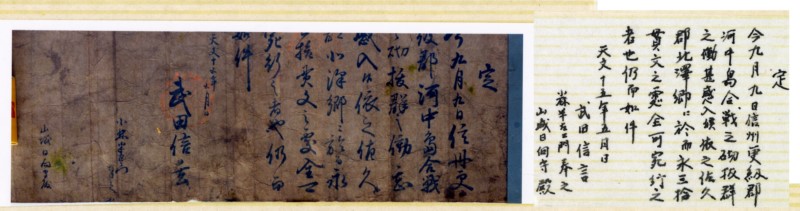 定
今九月九日信州更級郡
河中島合戦之砌抜群
之働甚感入候依之佐久
郡北澤郷ニ於而永三拾
貫文之處全可宛行之
者也仍而如件
天文十五年五月日
武田信言
半右エ門奉之
山城日向守殿
定
今九月九日信州更
級郡河中島合戦
砌抜群之働甚
感入候依之佐久
北澤郷ニ於永
拾貫文之處全可
宛行之者也仍而
如件
天文十五年五月日
武田信玄
小林
山城日向守殿